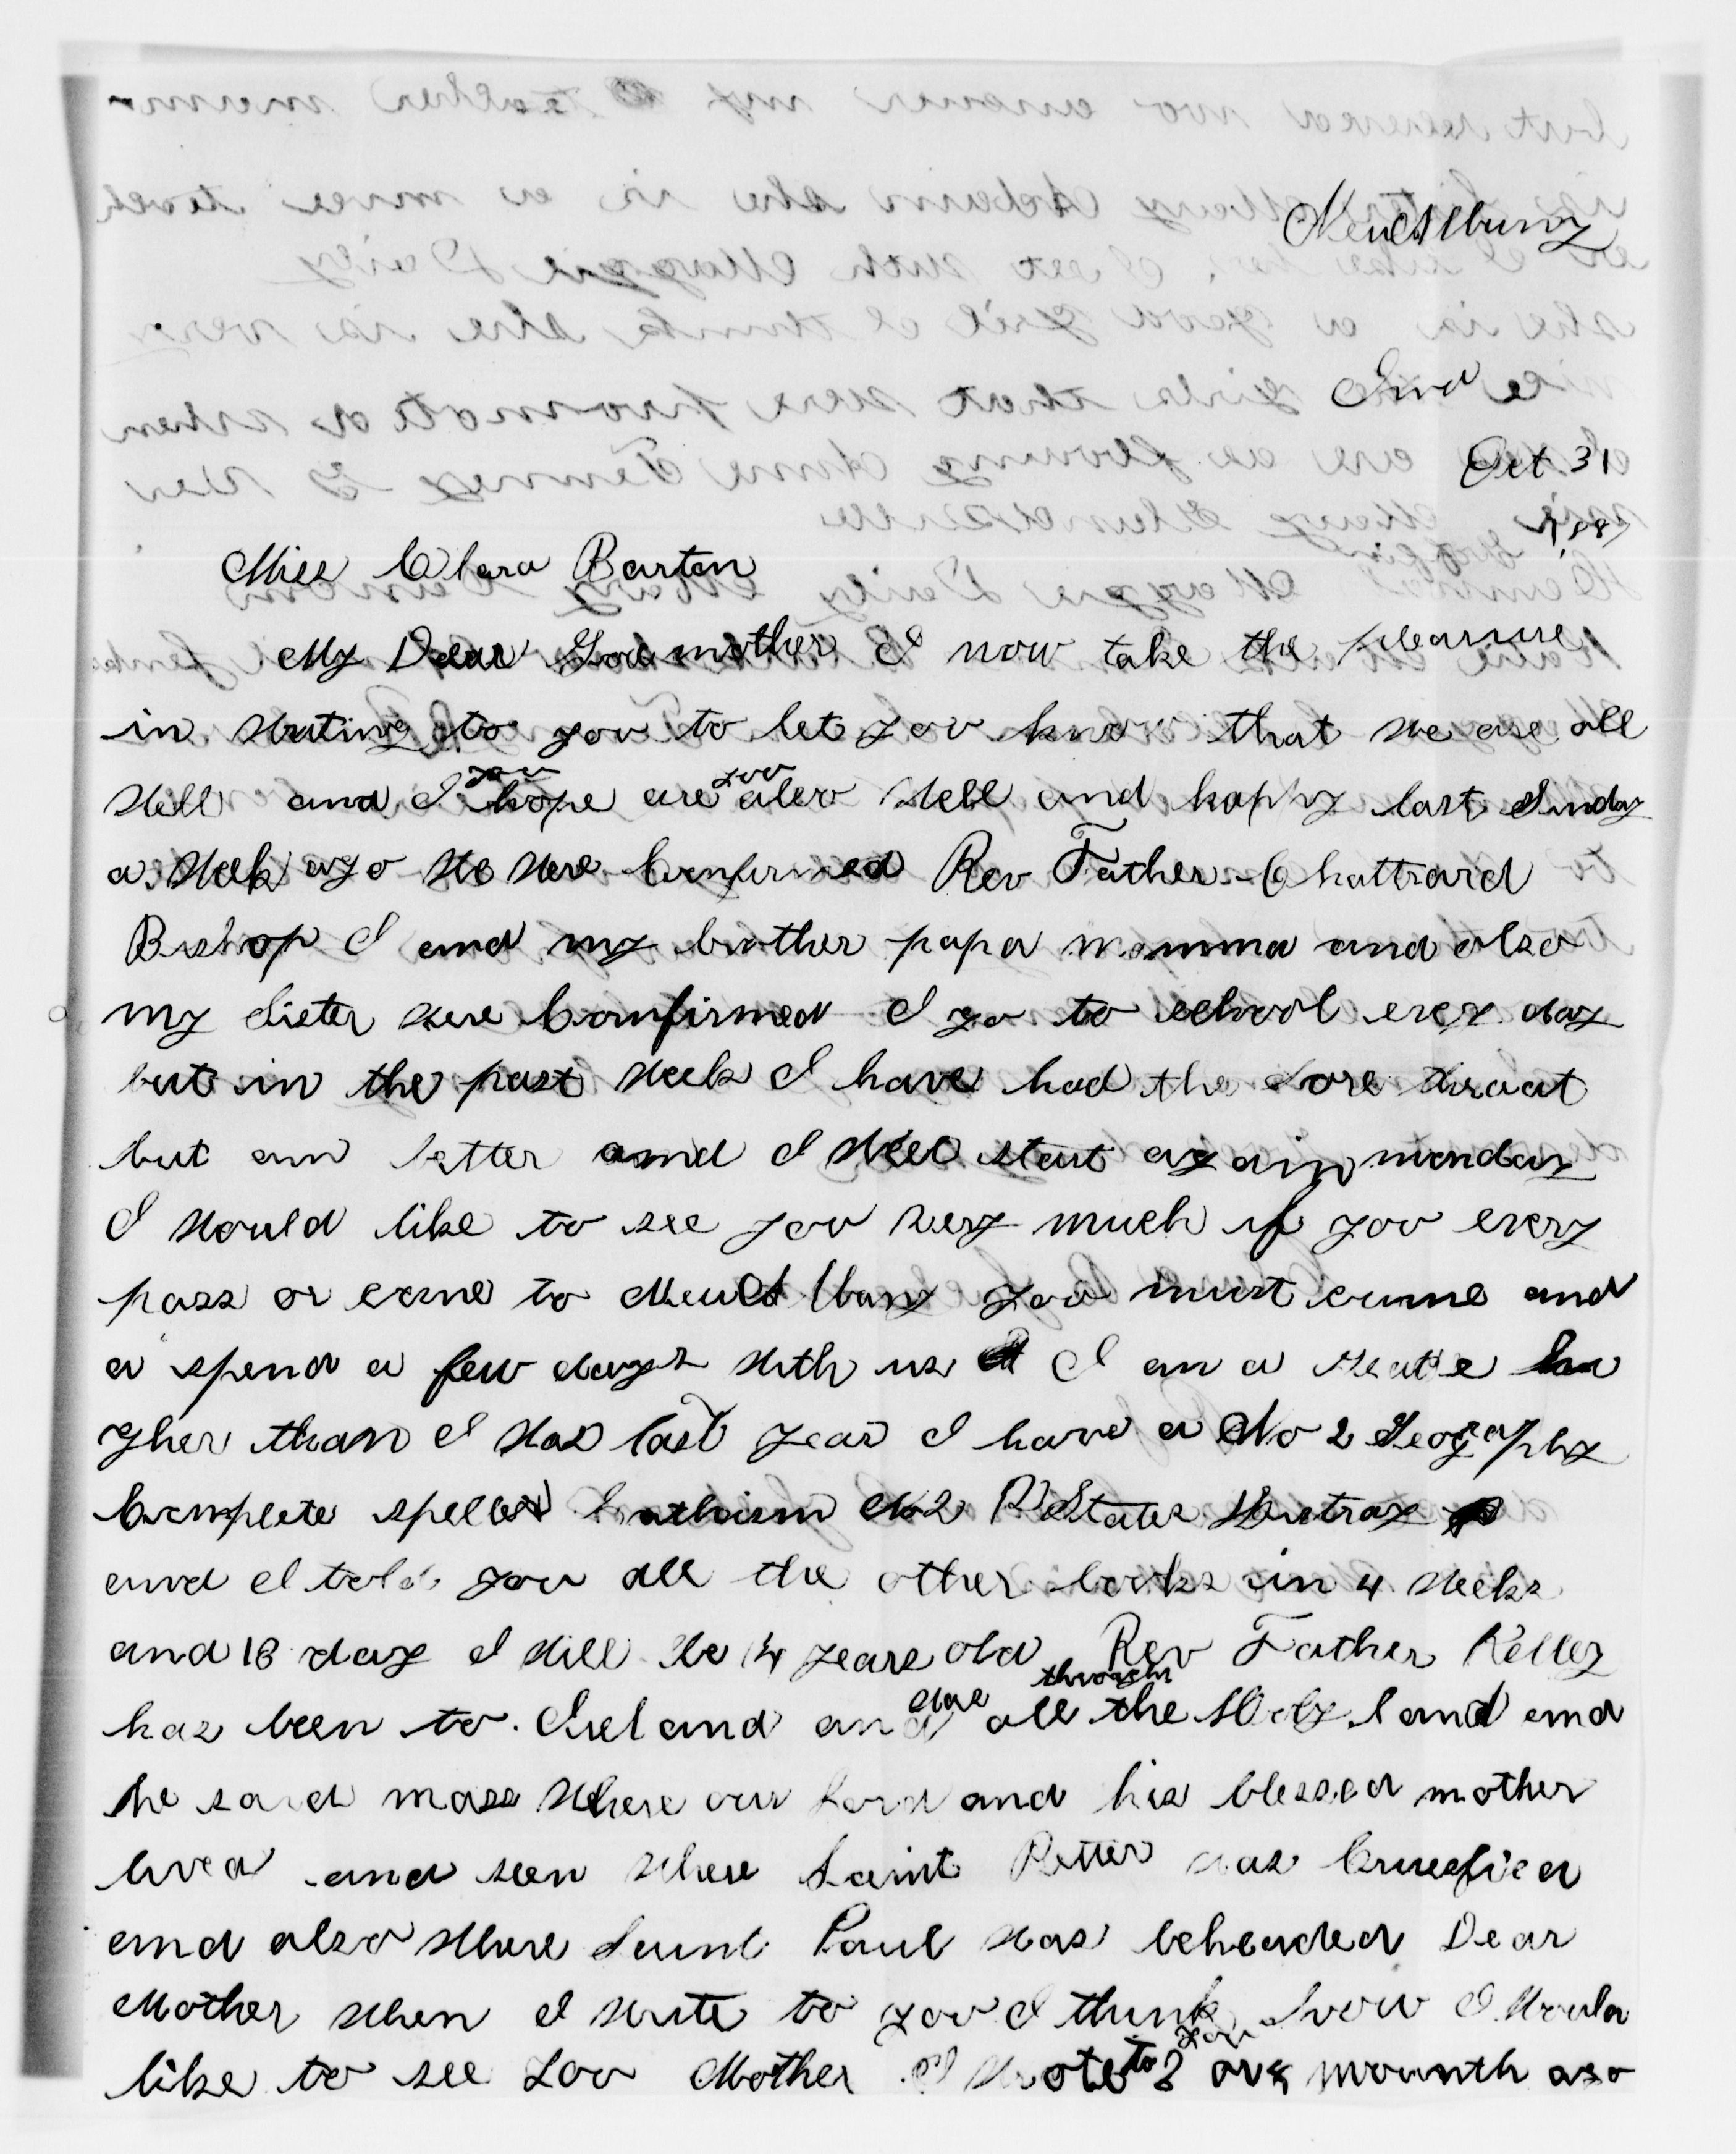 New Albany
Ind
Oct 31
1887
Miss Clara Barton
My Dear God mother I now take the pleasure
in writing to you to let you know that we are all
well and I you hope are you also well and happy last Sunday
a week ago we were Confirmed Rev Father Chattrard
Bishop I and my brother papa momma and also
my Sister were Confirmed I go to school every day
but in the past week I have had the sore throat
but am better and I will start again monday
I would like to see you very much if you every
pass or come to New Albany you must cume and
a spend a few days with us I am a
gher than I was last year I have a No 2 Geography
Complete speller No 2 States
and I told you all the other books in 4 weeks
and 18 day I will be 14 years old Rev Father Kelley
has been to Ireland and was all through the Holy Land and
he said mass where our Lord and his blessed mother
lived and seen where Saint Petter was Crucified
and also where Saint Paul was beheaded Dear
Mother when I write to you I think how I would
like to see you Mother I wrote to you or mounth ago